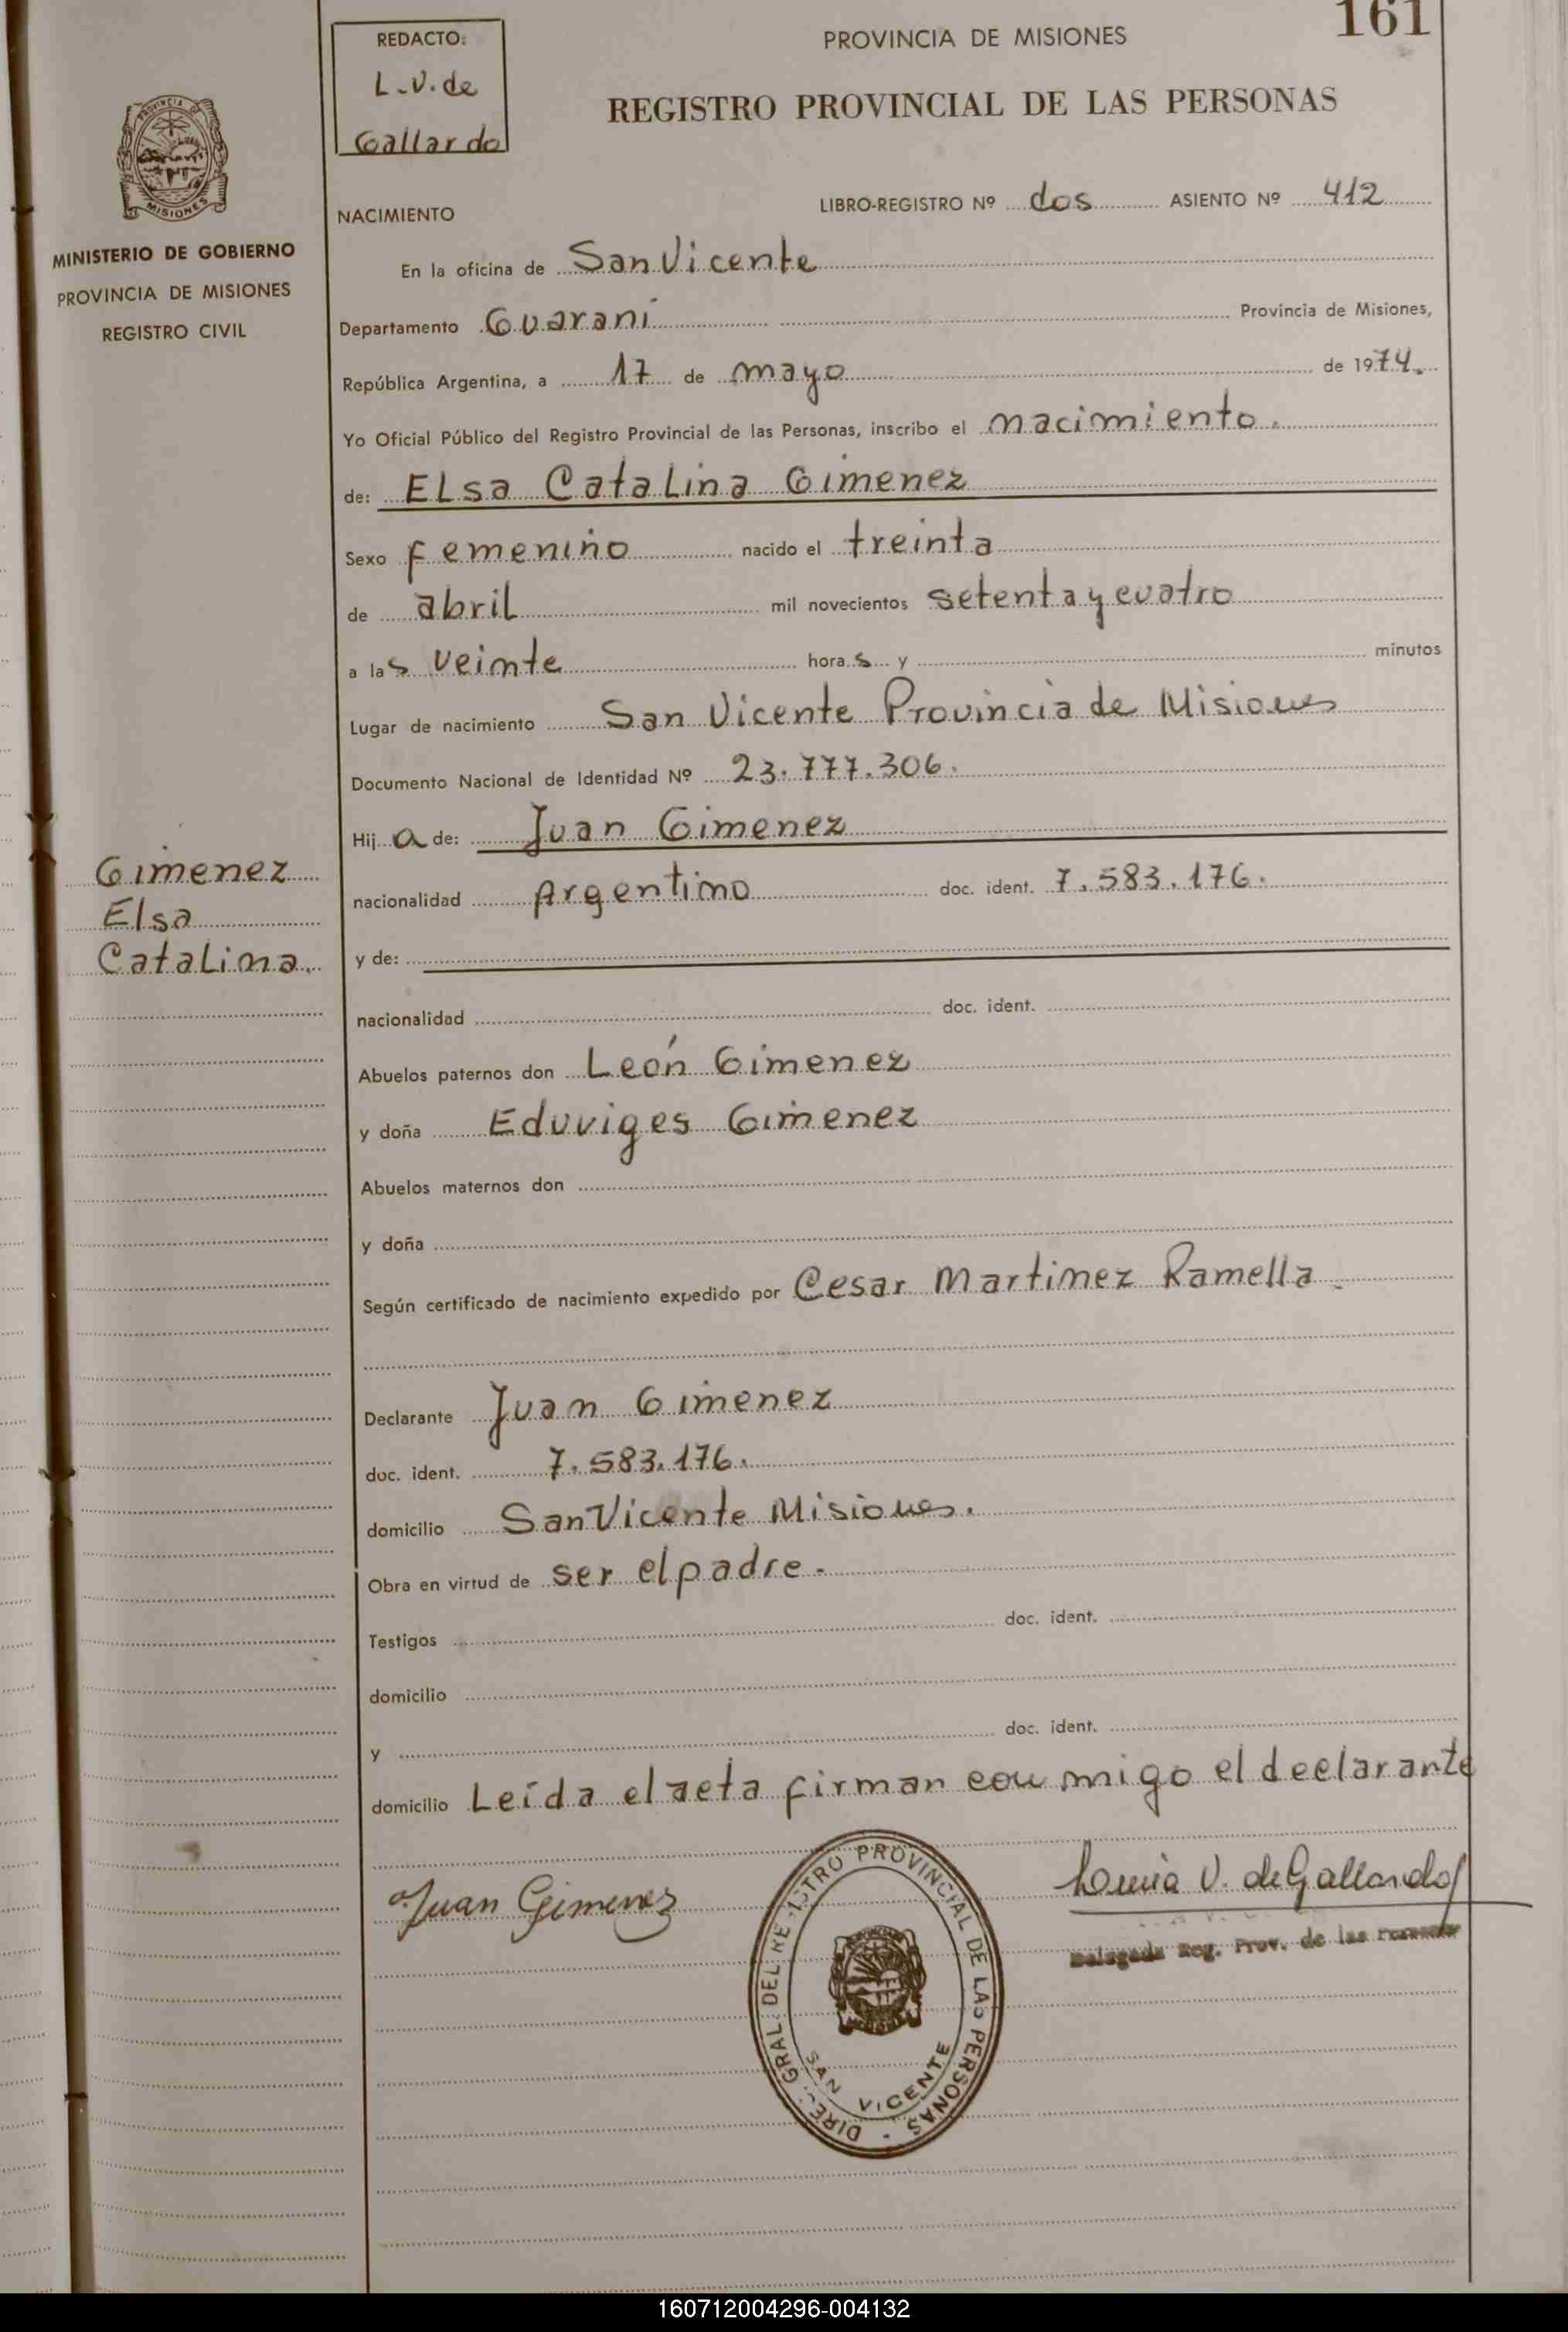 161
REDACTO:
L.V. de
Gallardo
PROVINCIA DE MISIONES
REGISTRO PROVINCIAL DE LAS PERSONAS
PROVINCIA DE
MISIONES
MINISTERIO DE GOBIERNO
PROVINCIA DE MISIONES
REGISTRO CIVIL
NACIMIENTO
LIBRO-REGISTRO Nº dos ASIENTO Nº 412
En la oficina de San Vicente
Departamento Guaraní Provincia de Misiones,
República Argentina, a 17 de mayo de 1974.
Yo Oficial Público del Registro Provincial de las Personas, inscribo el nacimiento.
de: Elsa Catalina Gimenez
Sexo femenino nacido el treinta
de abril mil novecientos setenta y cuatro
a las veinte horas y minutos
Lugar de nacimiento San Vicente Provincia de Misiones
Documento Nacional de Identidad Nº 23.777.306.
Hija de: Juan Gimenez
nacionalidad Argentino doc. ident. 7.583.176.
y de:
nacionalidad doc. ident.
Gimenez
Elsa
Catalina.
Abuelos paternos don León Gimenez
y doña Eduviges Gimenez
Abuelos maternos don
y doña
Según certificado de nacimiento expedido por Cesar Martinez Ramella.
Declarante Juan Gimenez
doc. ident. 7.583.176.
domicilio San Vicente Misiones.
Obra en virtud de ser el padre.
Testigos doc. ident.
domicilio
y doc. ident.
domicilio Leída el acta firman con migo el declarante
Juan Gimenez
V. de Gallardo
Delegada Reg. Prov. de las Personas
DIREC. GRAL. DEL REGISTRO PROVINCIAL DE LAS PERSONAS
SAN VICENTE
160712004296-004132